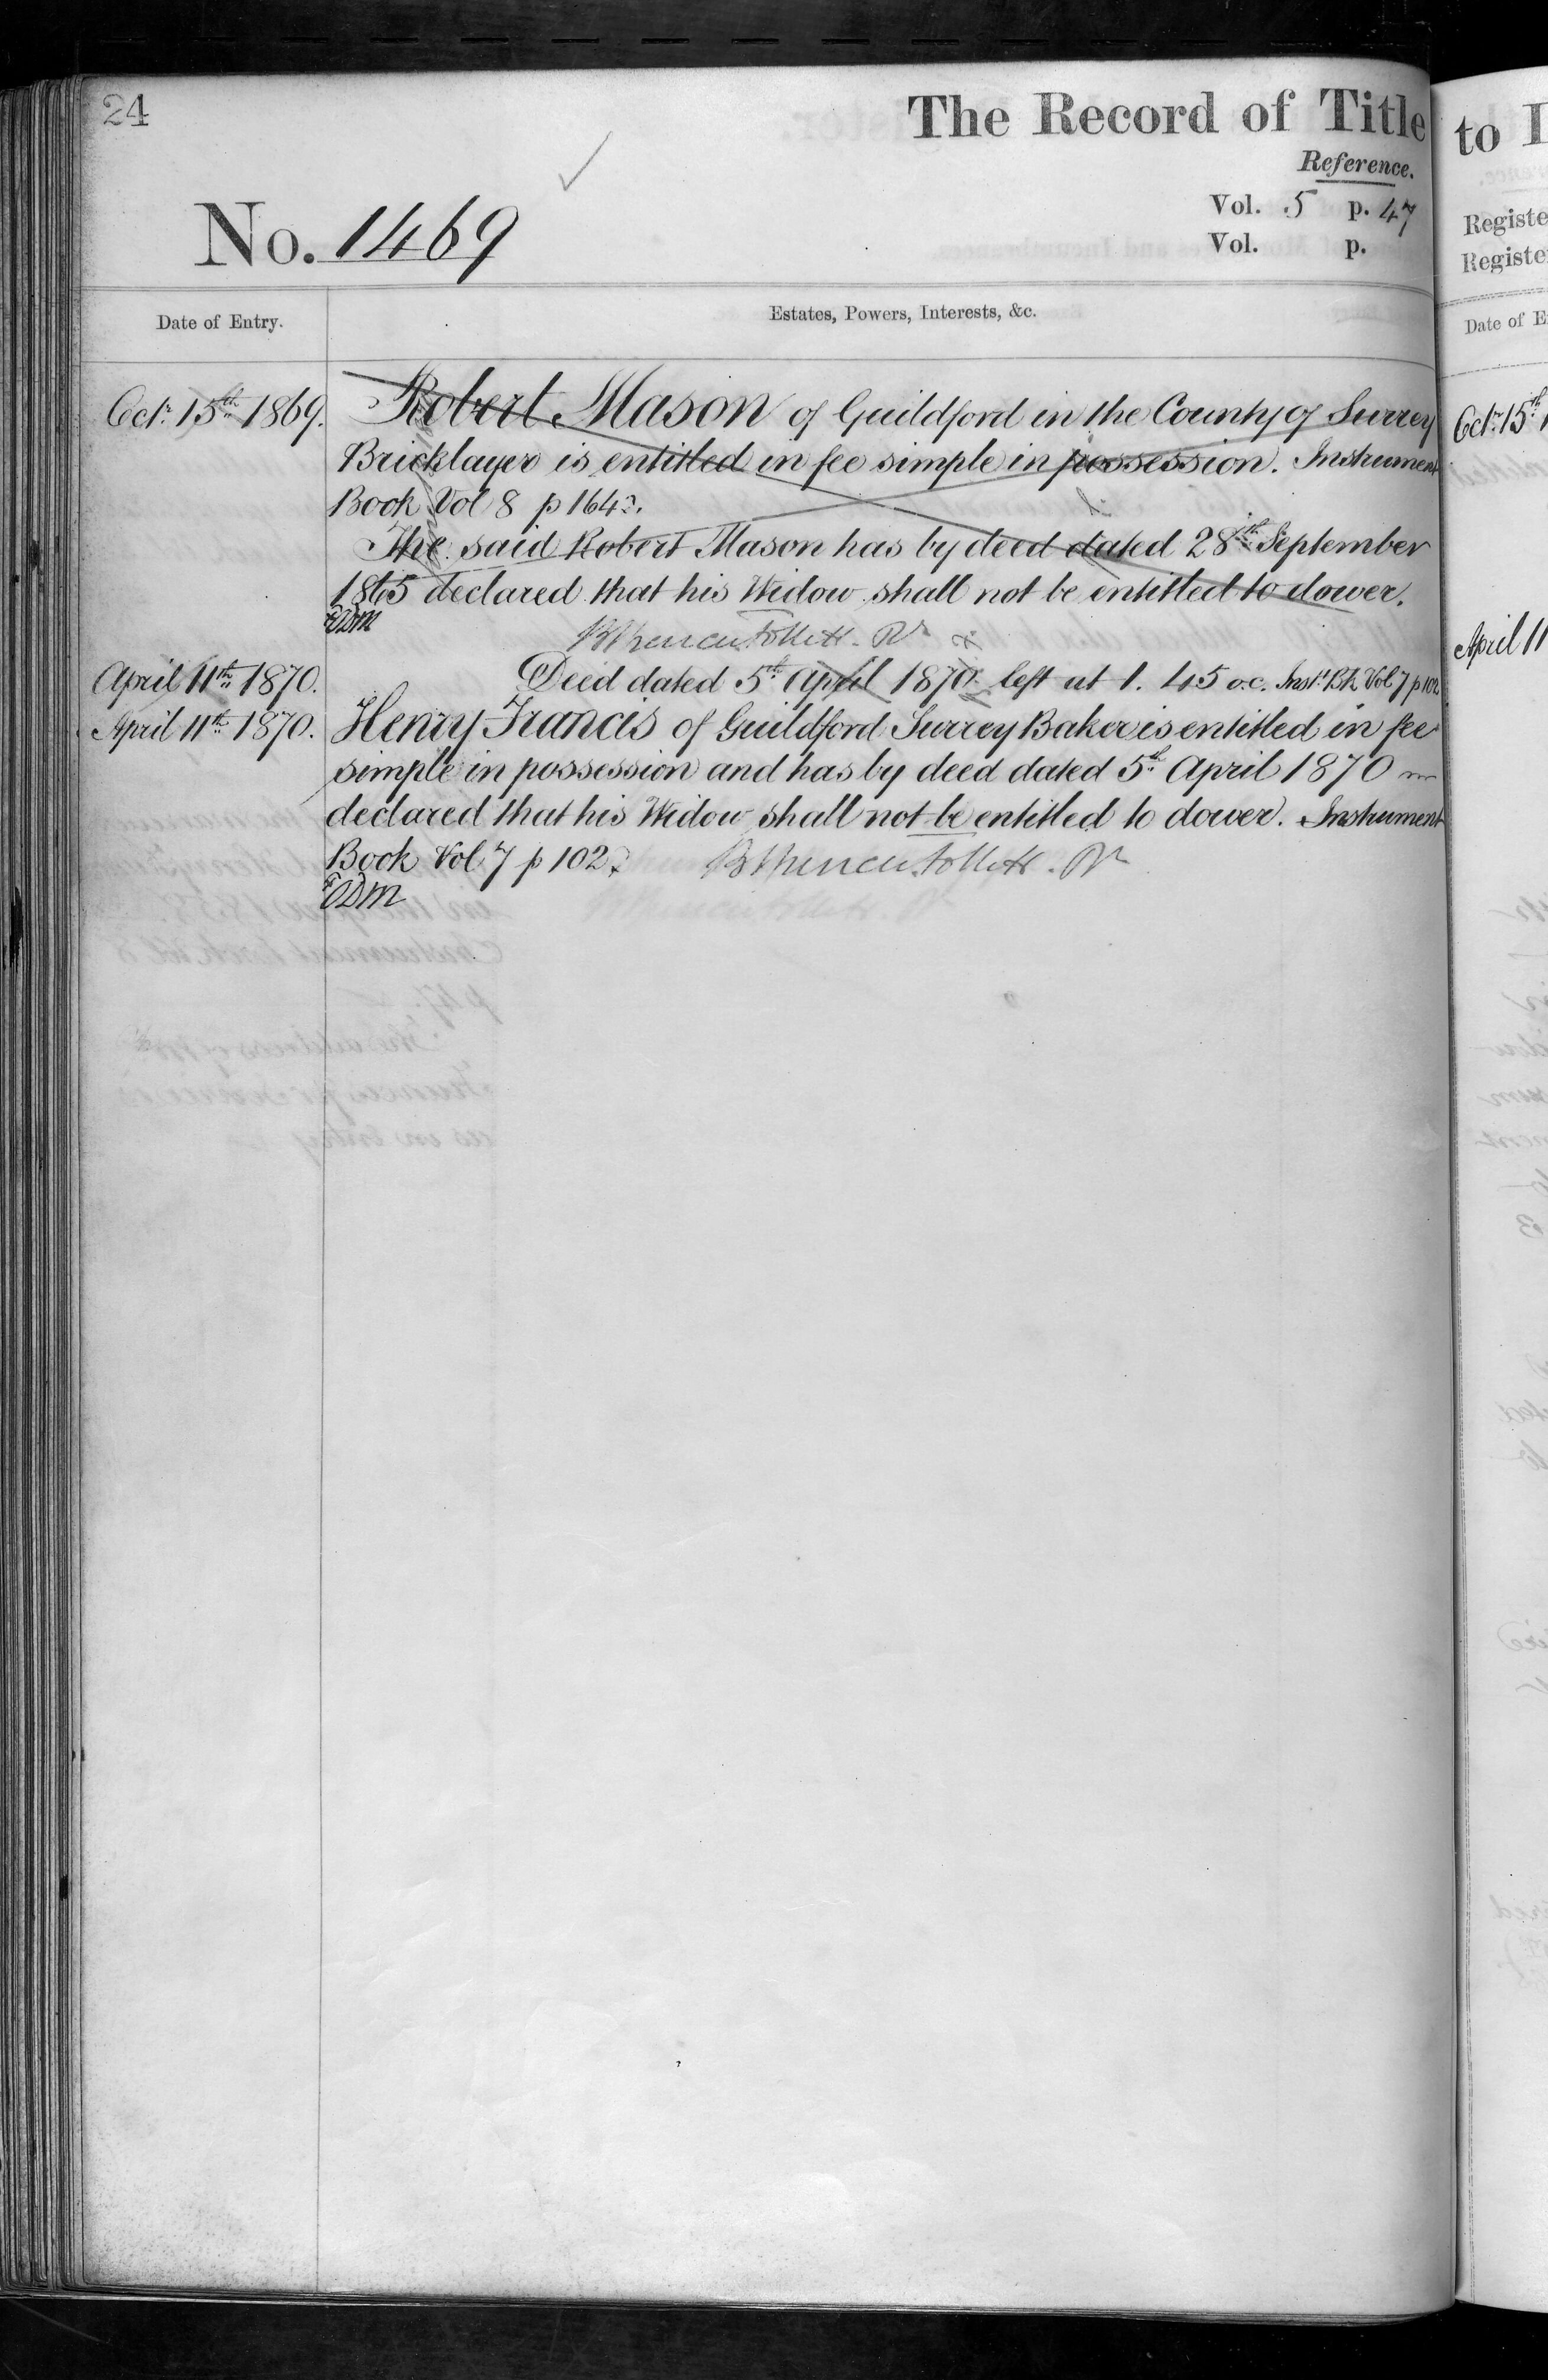 24
The Record of Title
to
Reference.
Vol. 5 p. 47
Vol. p.
No. 1469
Registe
Registe
Date of Entry.
Estates, Powers, Interests, &c.
Date of E
Octr. 15th 1869.
Robert Mason of Guildford in the County of Surrey
Bricklayer is entitled in fee simple in possession. Instrument
Book Vol 8 p 164.
The said Robert Mason has by deed dated 28th September
1865 declared that his Widow shall not be entitled to dower.
EDM
Follett. Rr
April 11th 1870.
Deed dated 5th April 1870 left at 1. 45 o.c. Inst. Bk Vol 7 p 102
April 11th 1870.
Henry Francis of Guildford Surrey Baker is entitled in fee
simple in possession and has by deed dated 5th April 1870
declared that his Widow shall not be entitled to dower. Instrument
Book Vol 7 p 102.
Follett. Rr
EDM
Octr. 15th
April 11